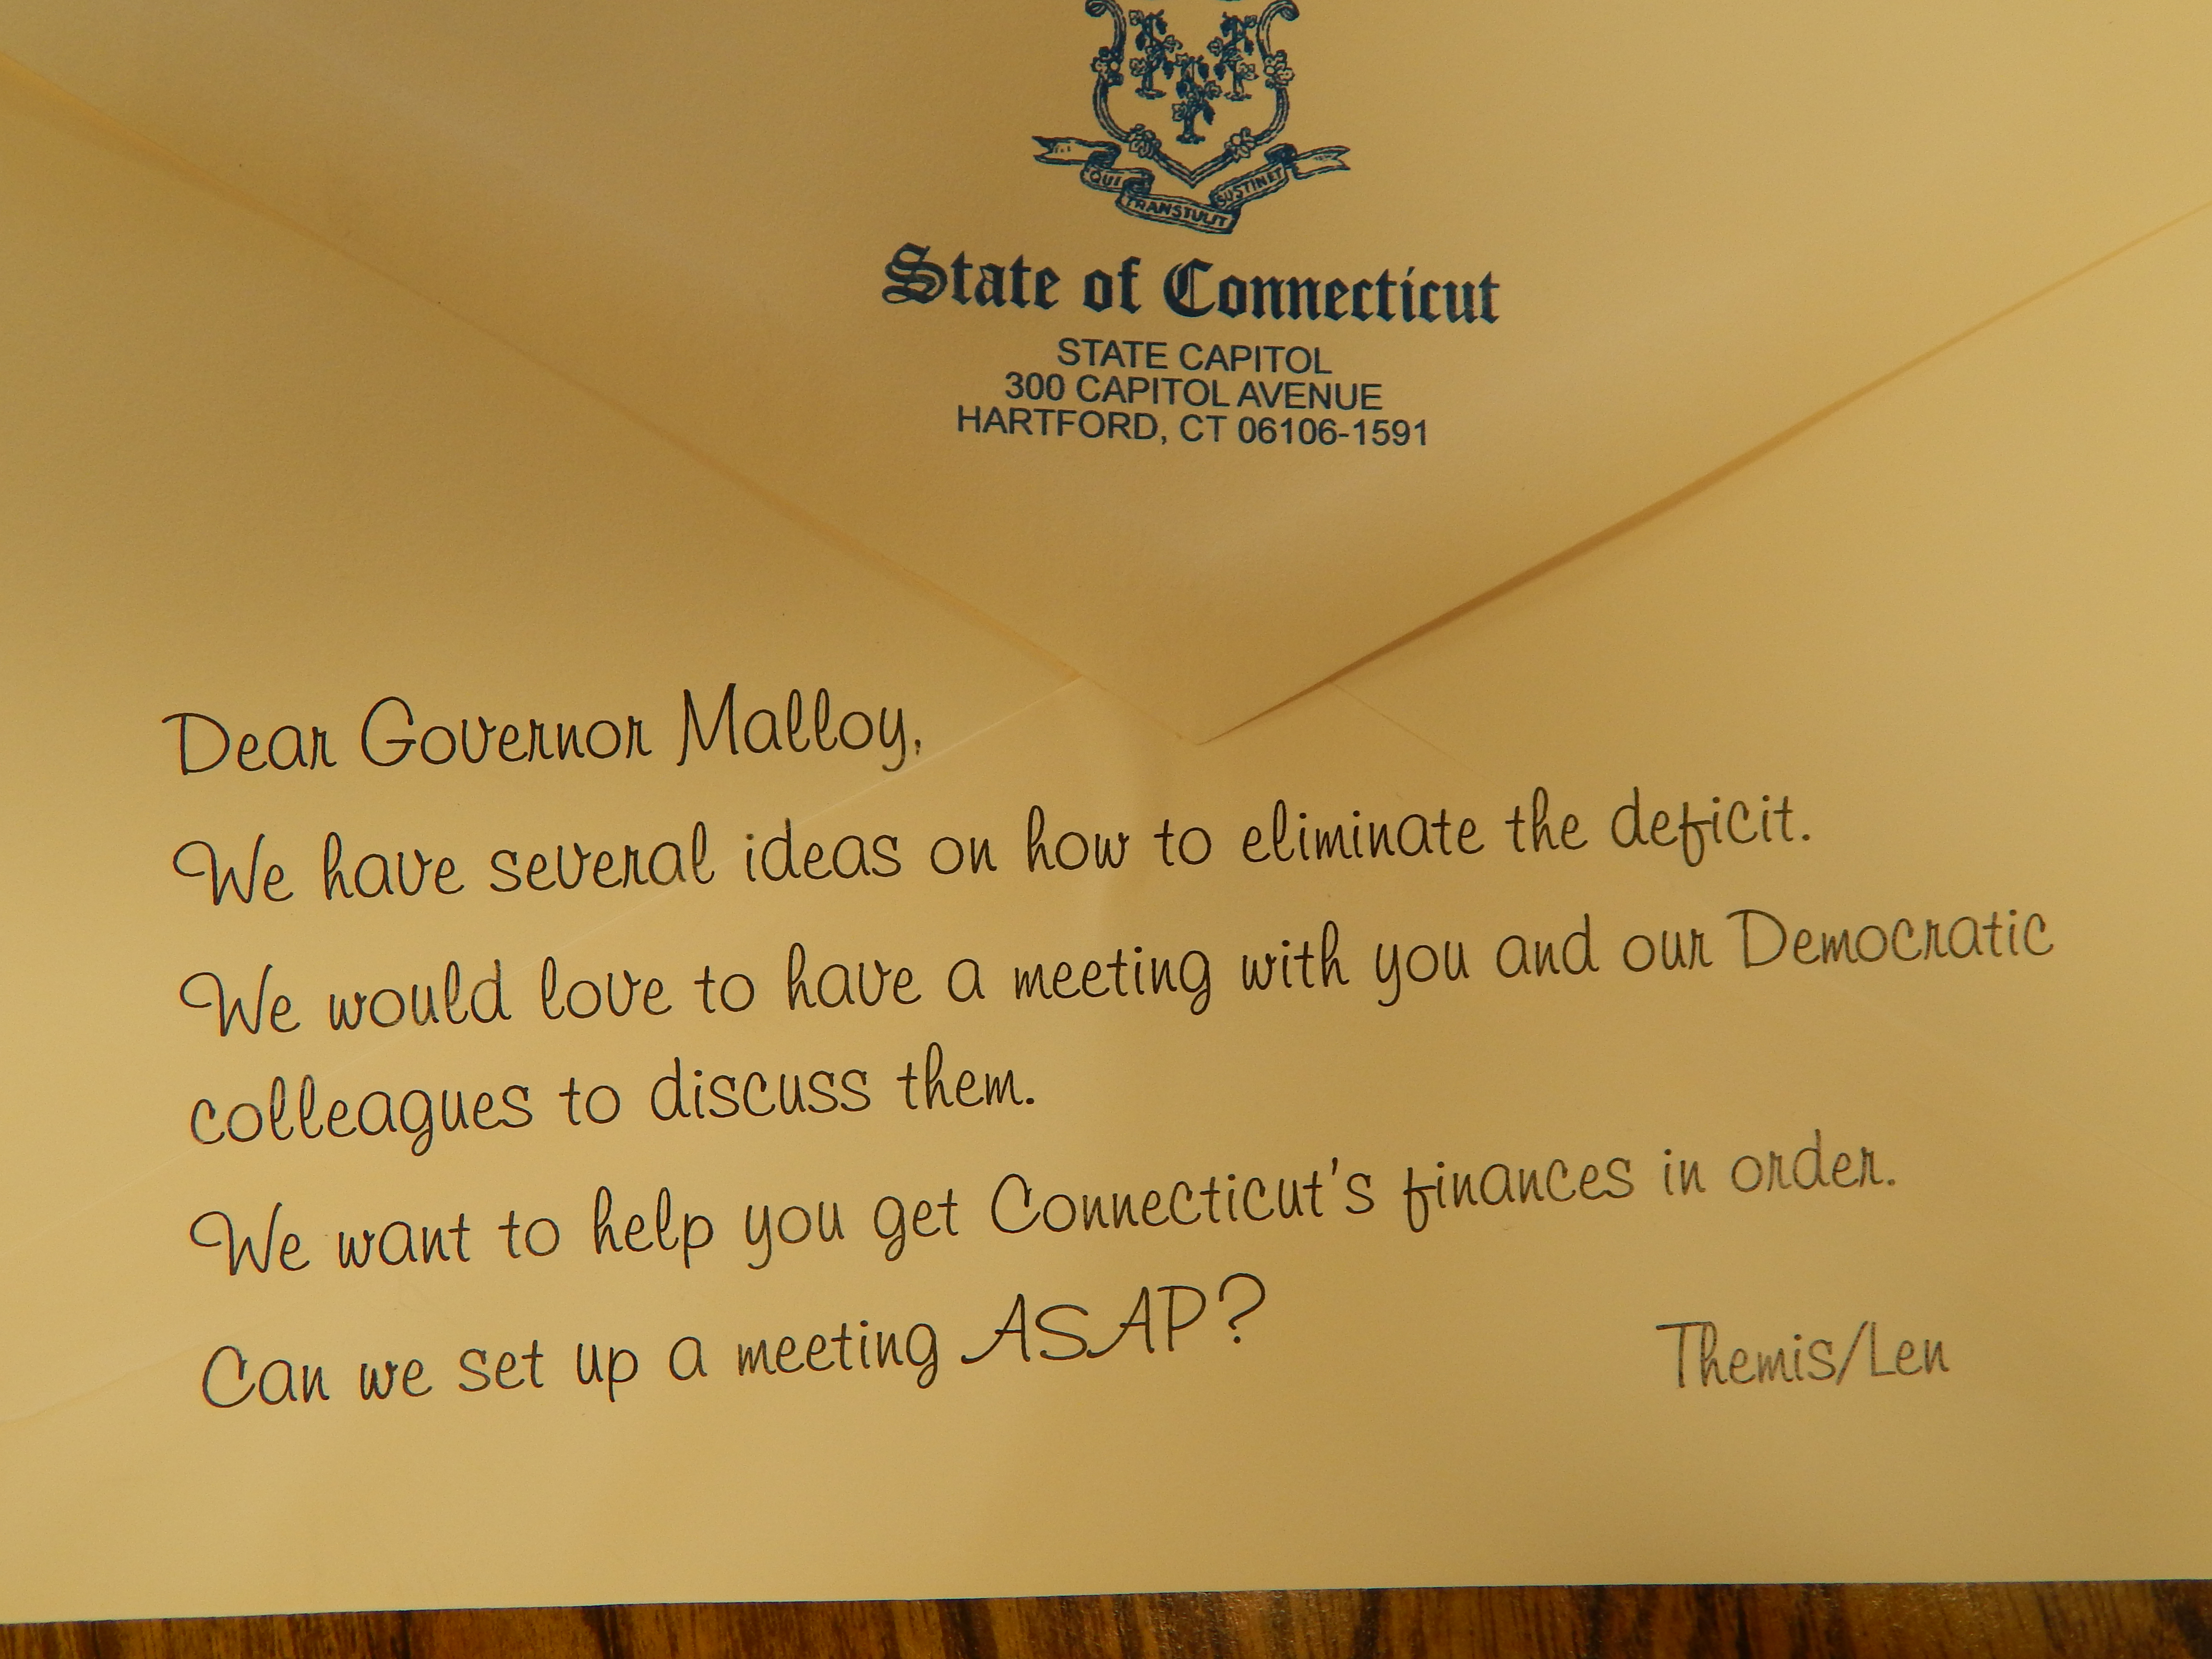 QUI TRANSTULIT SUSTINET
State of Connecticut
STATE CAPITOL
300 CAPITOL AVENUE
HARTFORD, CT 06106-1591
Dear Governor Malloy,
We have several ideas on how to eliminate the deficit.
We would love to have a meeting with you and our Democratic
colleagues to discuss them.
We want to help you get Connecticut's finances in order.
Can we set up a meeting ASAP?
Themis/Len